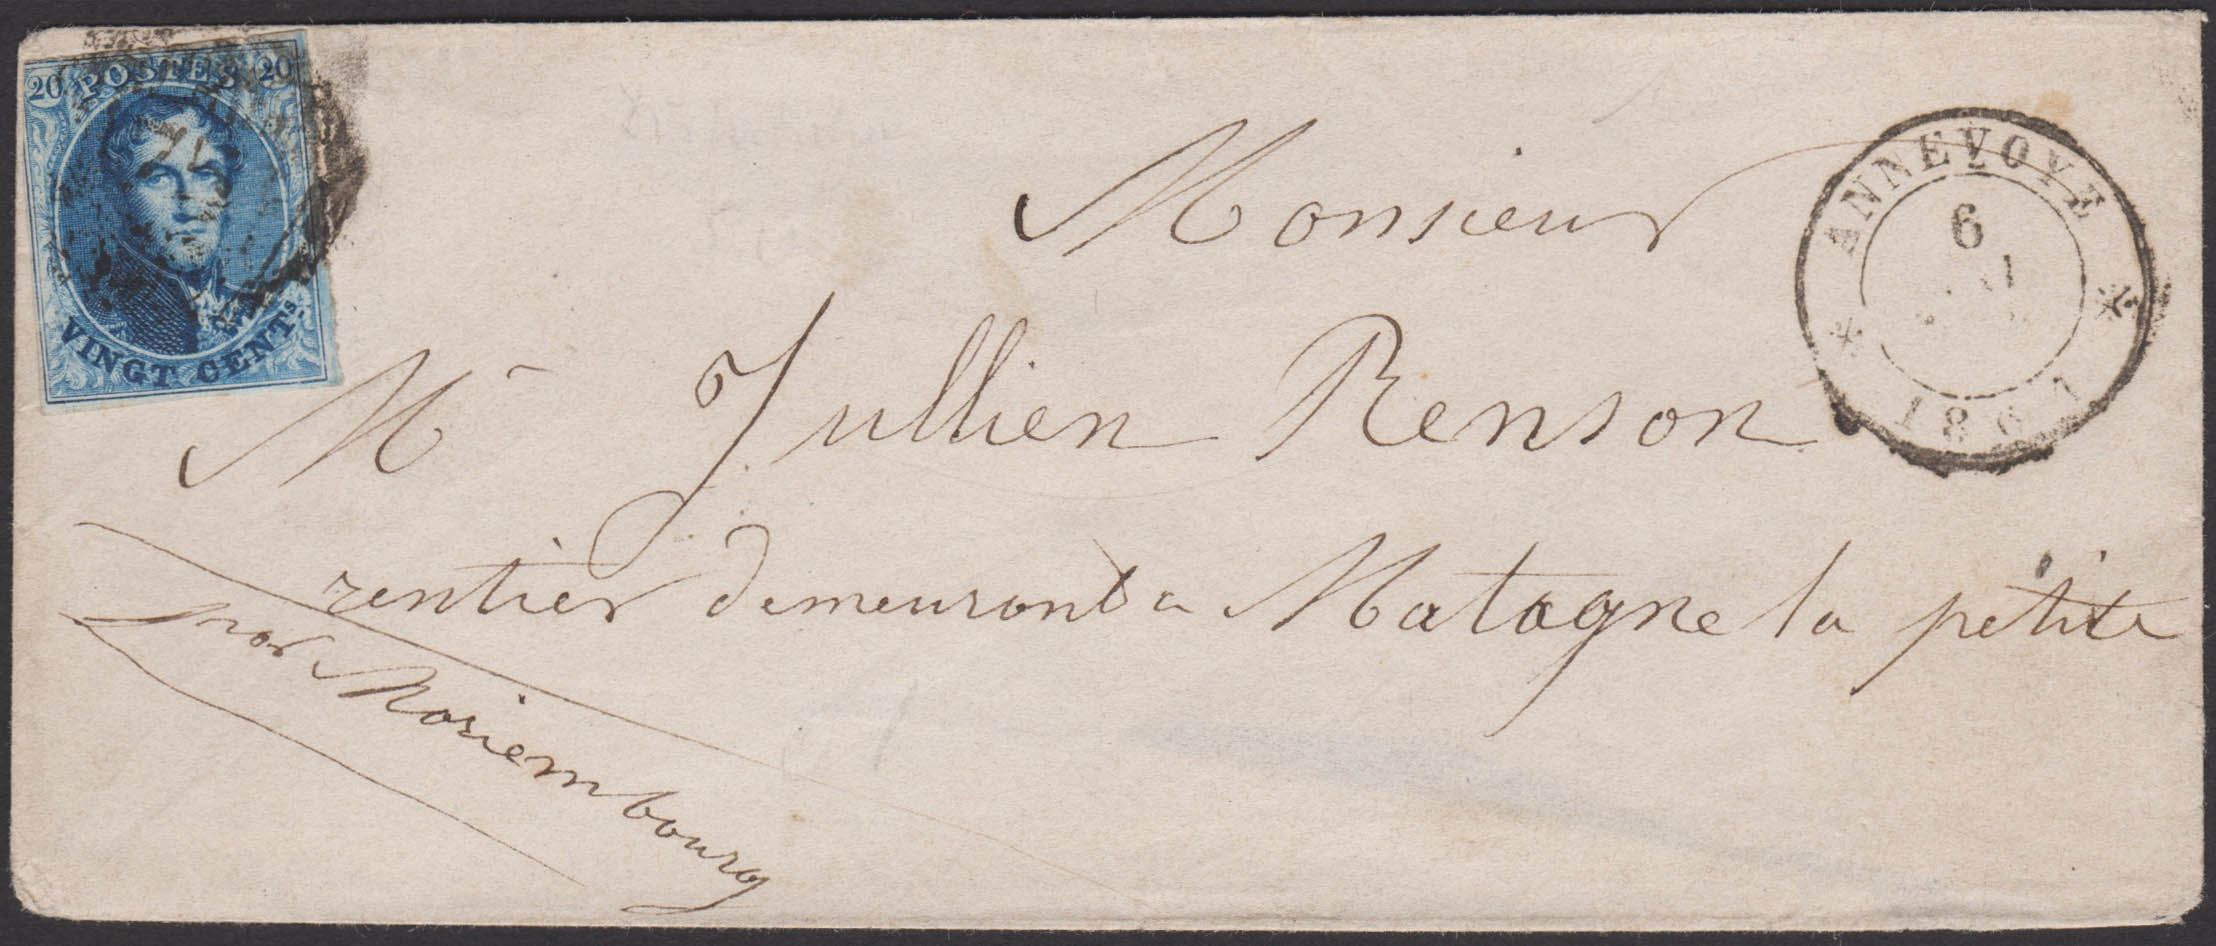 20 POSTES 20
VINGT CENTS
ANNEVOYE
6
1861
Monsieur
Mr Jullien Renson
rentier demeurant a Matagne la petite
par Mariembourg